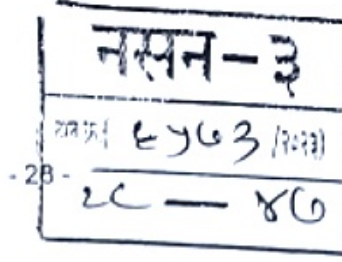 नसन-३
६५७३ /२०२३)
- 28 -
२८ — ४७